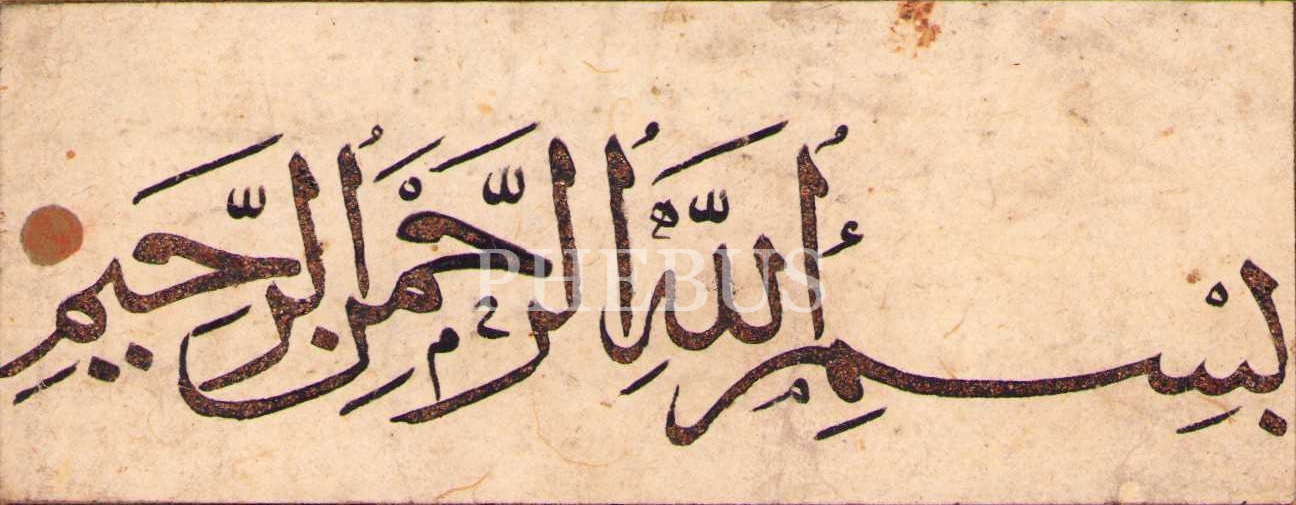 بِسْمِ ٱللَّهِ ٱلرَّحْمَٰنِ ٱلرَّحِيمِ
PHEBUS